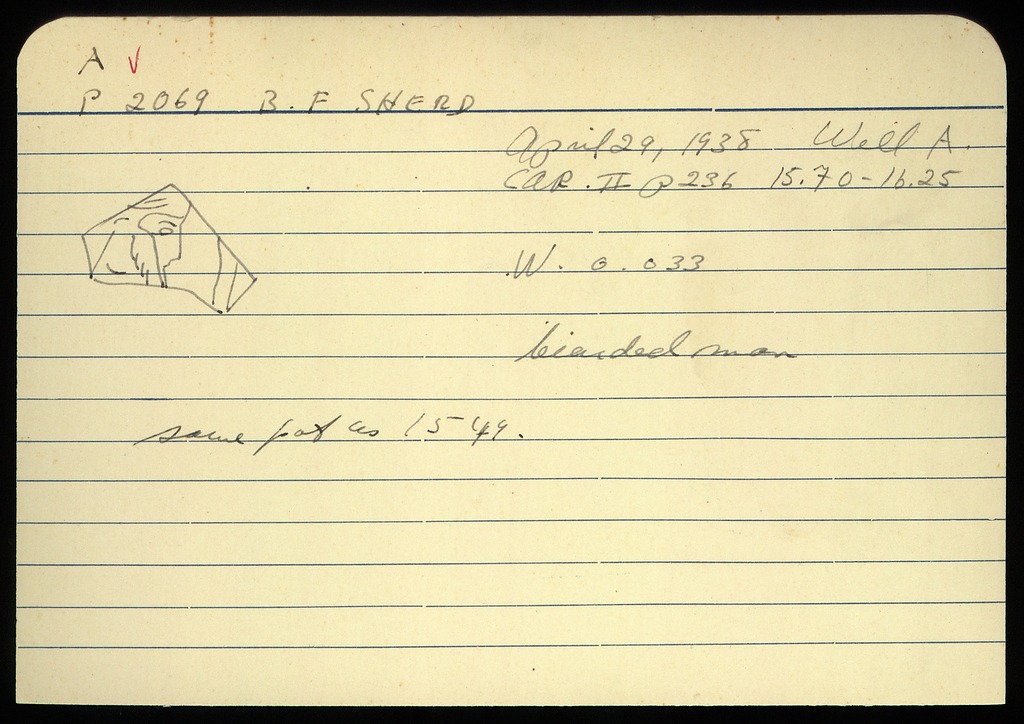 A √
P 2069 B. F SHERD
April 29, 1938 Well A.
CAP. II p 236 15.70-16.25
W. 0.033
bearded man
same pot as 1549.